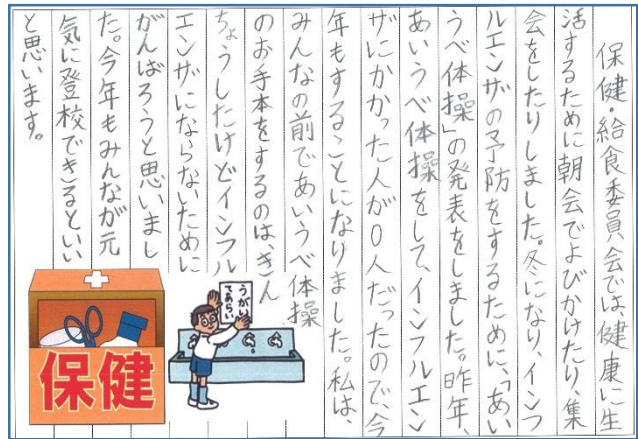 保健・給食委員会では、健康に生
活するために朝会でよびかけたり、集
会をしたりしました。冬になり、インフ
ルエンザの予防をするために、「あい
うべ体操」の発表をしました。昨年、
あいうべ体操をして、インフルエン
ザにかかった人が0人だったので、今
年もすることになりました。私は、
みんなの前であいうべ体操
のお手本をするのは、きん
ちょうしたけどインフル
エンザにならないために
がんばろうと思いまし
た。今年もみんなが元
気に登校できるといい
と思います。
うがい
てあらい
保健